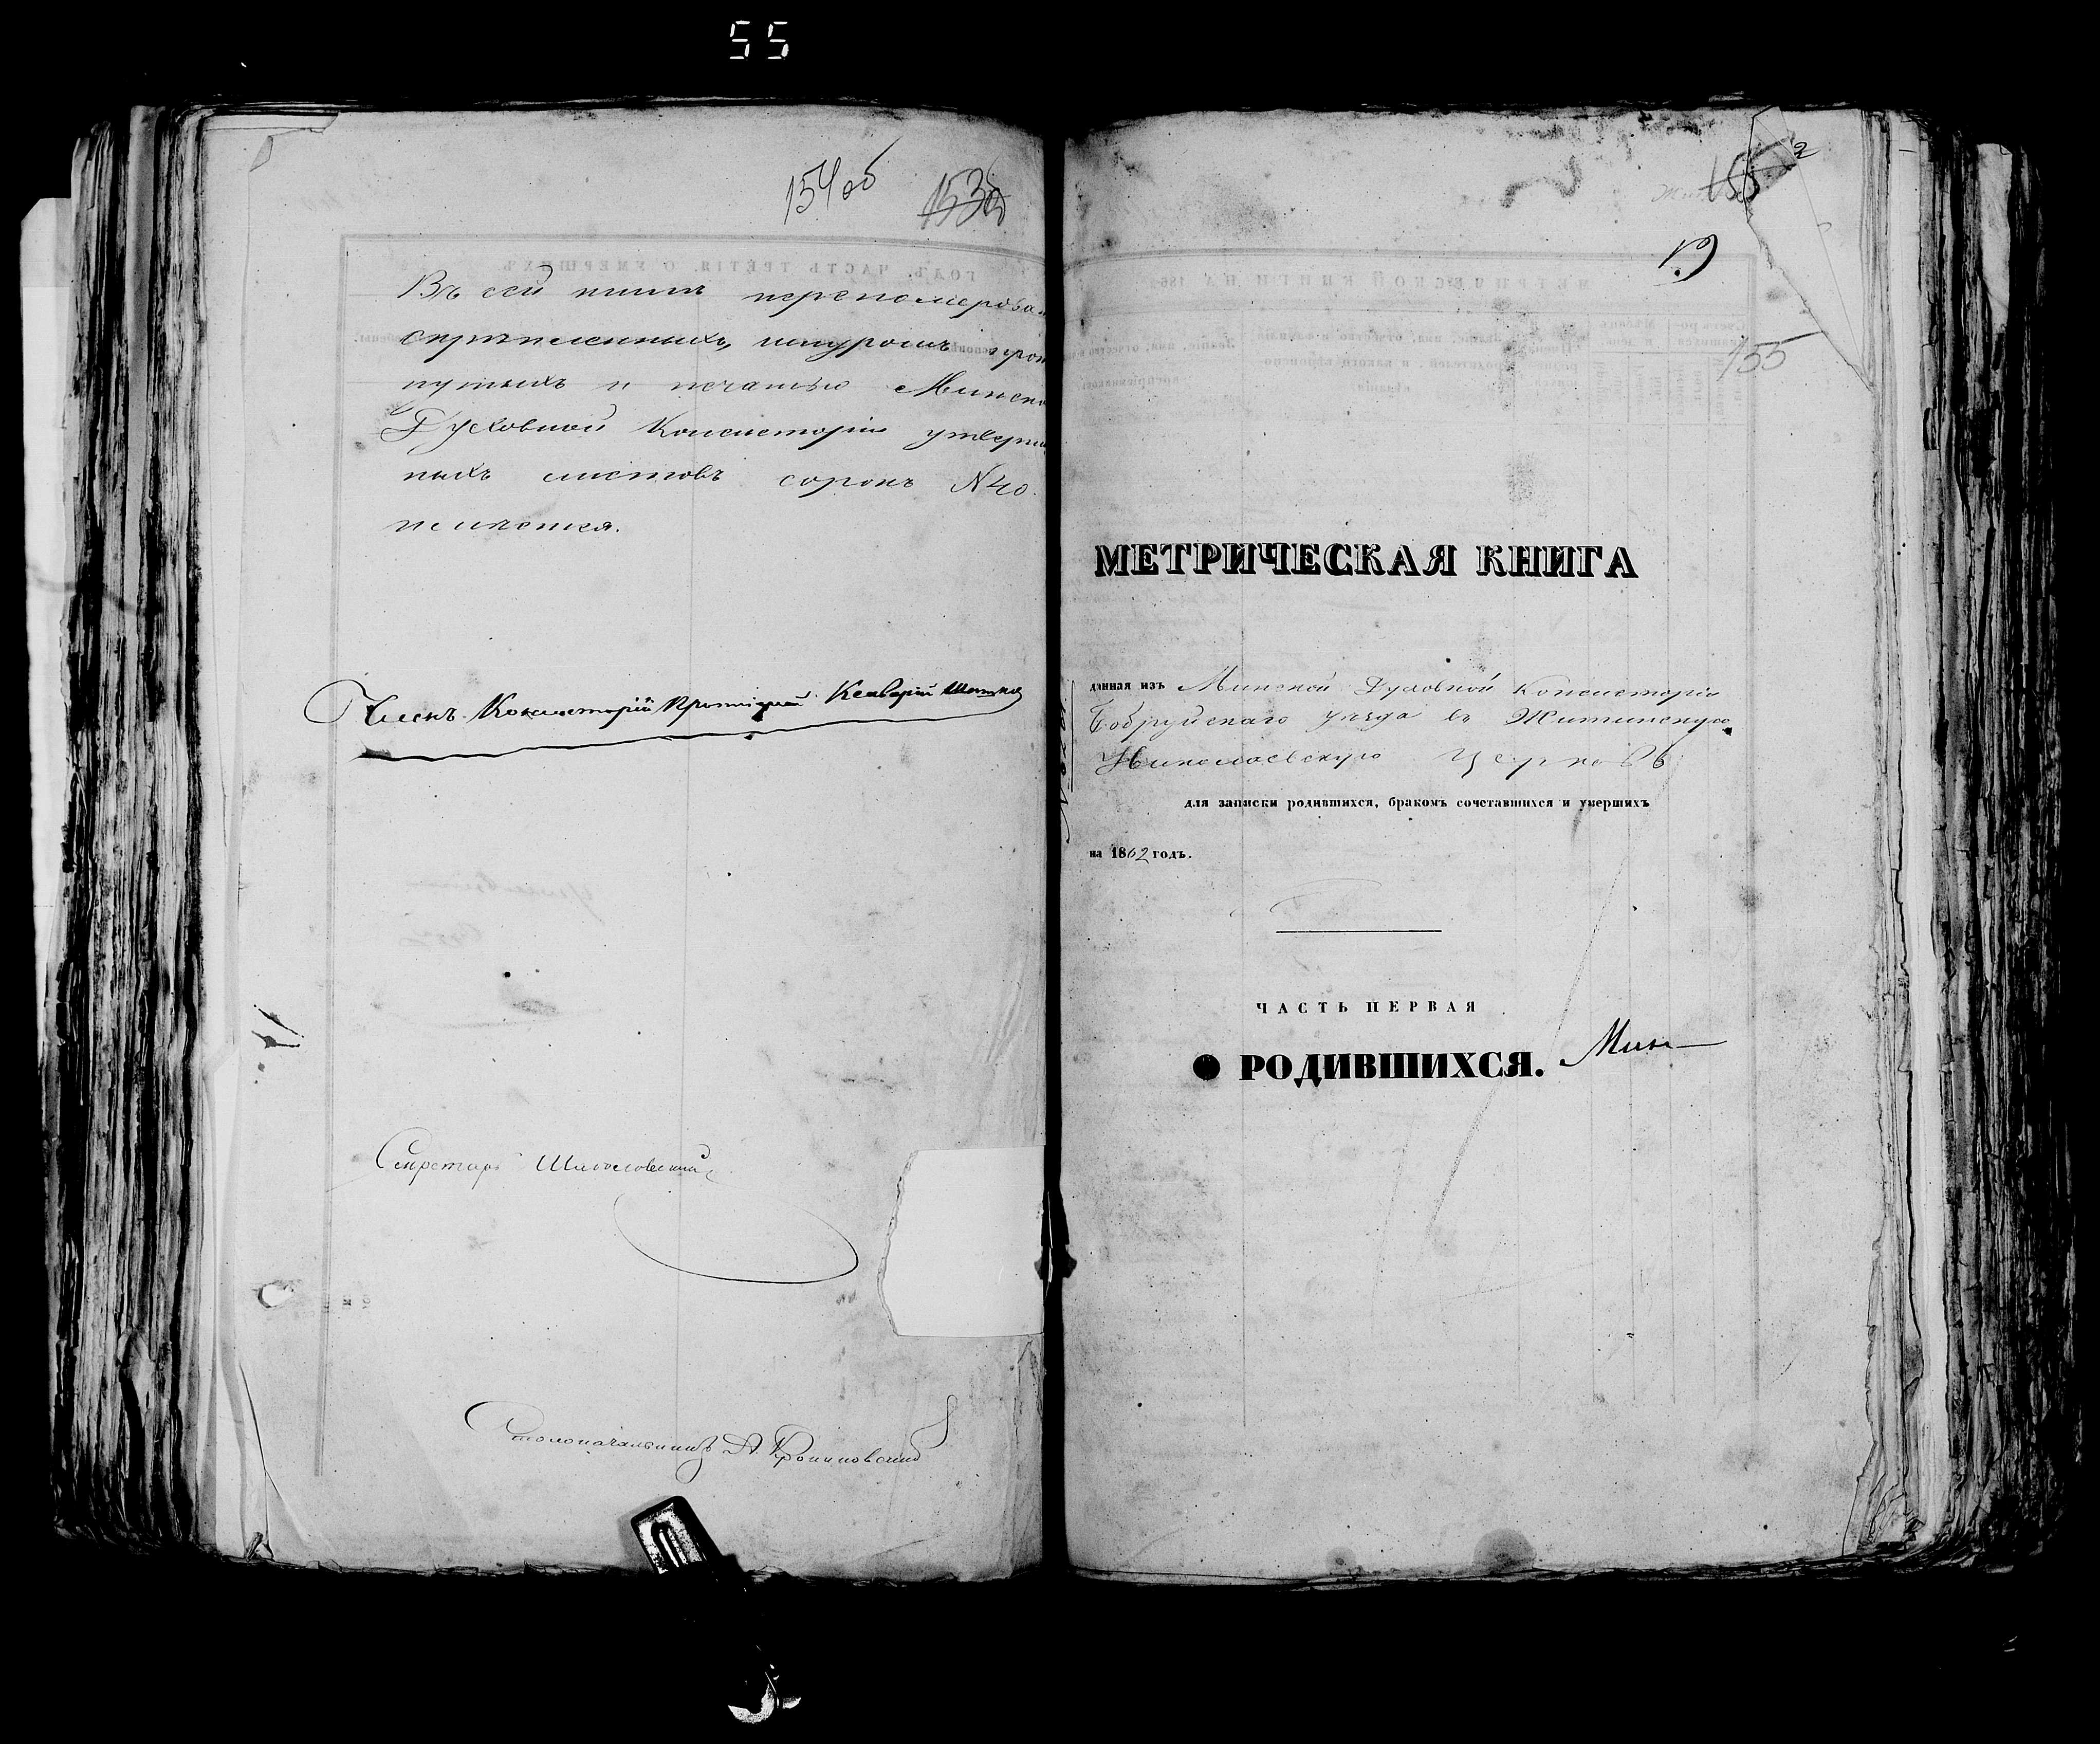 55
154 об
153 об
Въ сей книгѣ перенумерован
скрѣпленныхъ, шнуромъ прош
нутыхъ и печатью Минско
Духовной Консисторіи утверж
ныхъ листовъ сорокъ N 40.
Членъ Консисторіи Протоіерей
Секретарь
Столоначальникъ А.
155
2
19
155
МЕТРИЧЕСКАЯ КНИГА
данная изъ Минской Духовной Консисторіи
Бобруйскаго уѣзда въ Житинскую
Николаевскую церковь
для записки родившихся, бракомъ сочетавшихся и умершихъ
на 1862 годъ.
ЧАСТЬ ПЕРВАЯ
О РОДИВШИХСЯ.